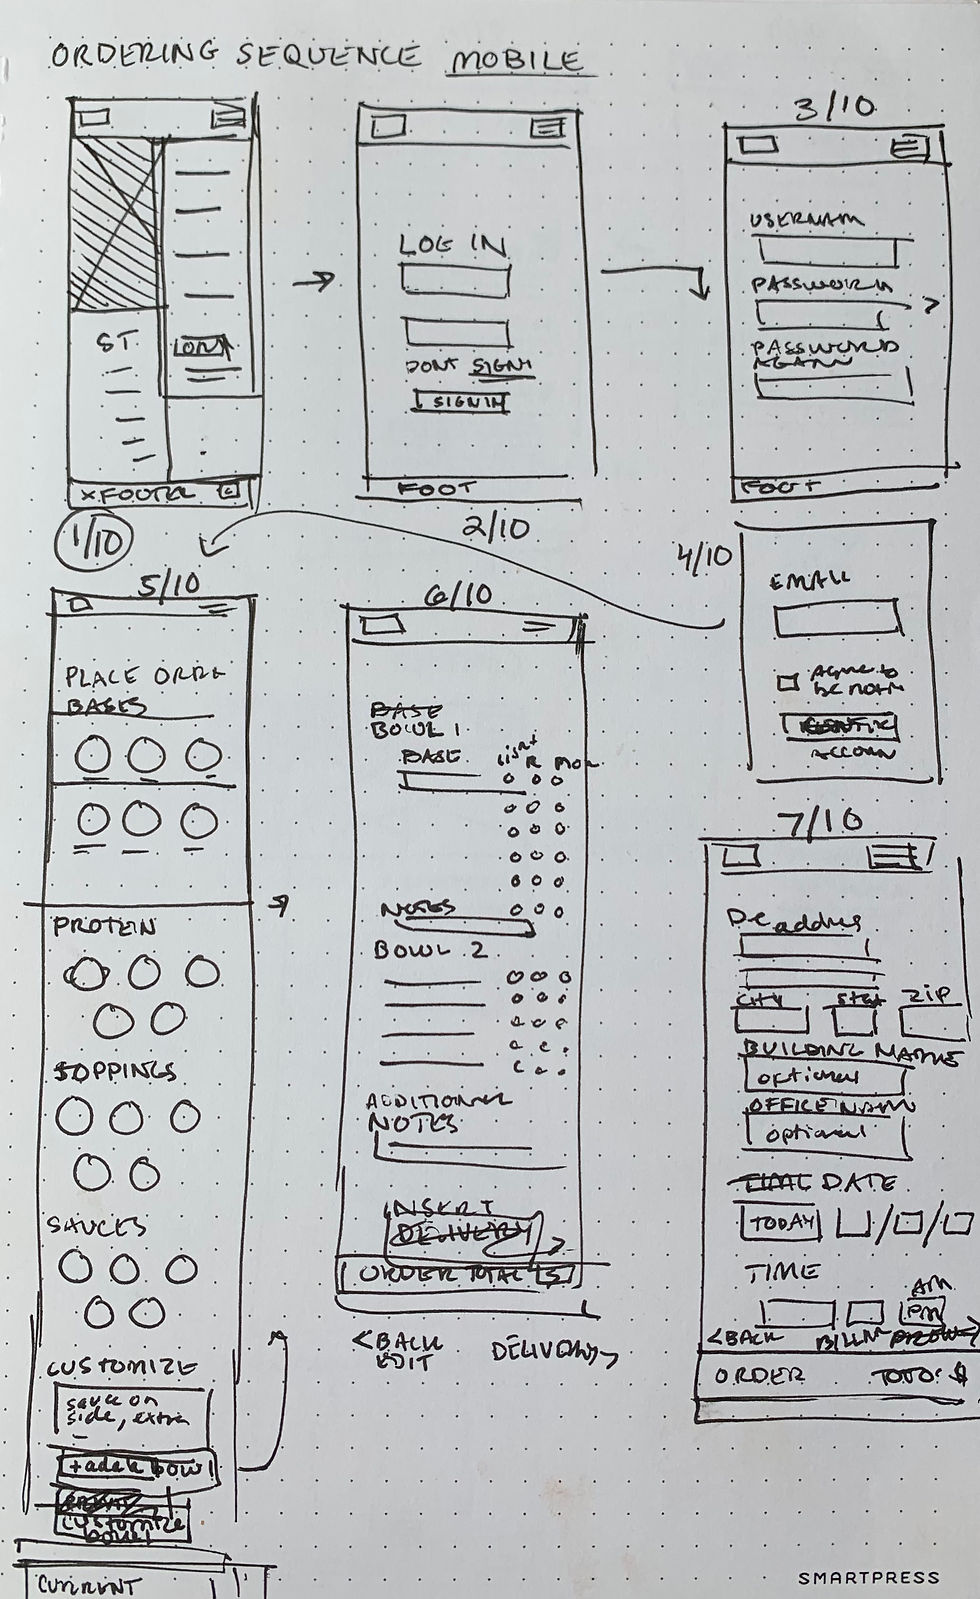 ORDERING SEQUENCE MOBILE
ST
XFOOTER
1/10
LOG IN
DONT SIGN
SIGN IN
FOOT
2/10
3/10
USERNAM
PASSWORD
PASSWORD
AGAIN
FOOT
4/10
EMAIL
AGREE to
ACCOUN
5/10
PLACE
BASES
PROTEIN
TOPPINGS
SAUCES
CUSTOMIZE
sauce on
side, extra
+ add bowl
CUSTOMIZE
bowl
CURRENT
6/10
BASE
BOWL 1
BASE
R
NOTES
BOWL 2
ADDITIONAL
NOTES
INSERT
DELIVERY
ORDER TOTAL $
<BACK
EDIT
DELIVERY
7/10
address
CITY
ZIP
BUILDING
optional
OFFICE
optional
DATE
TODAY / /
TIME
AM
PM
<BACK
ORDER $
SMARTPRESS